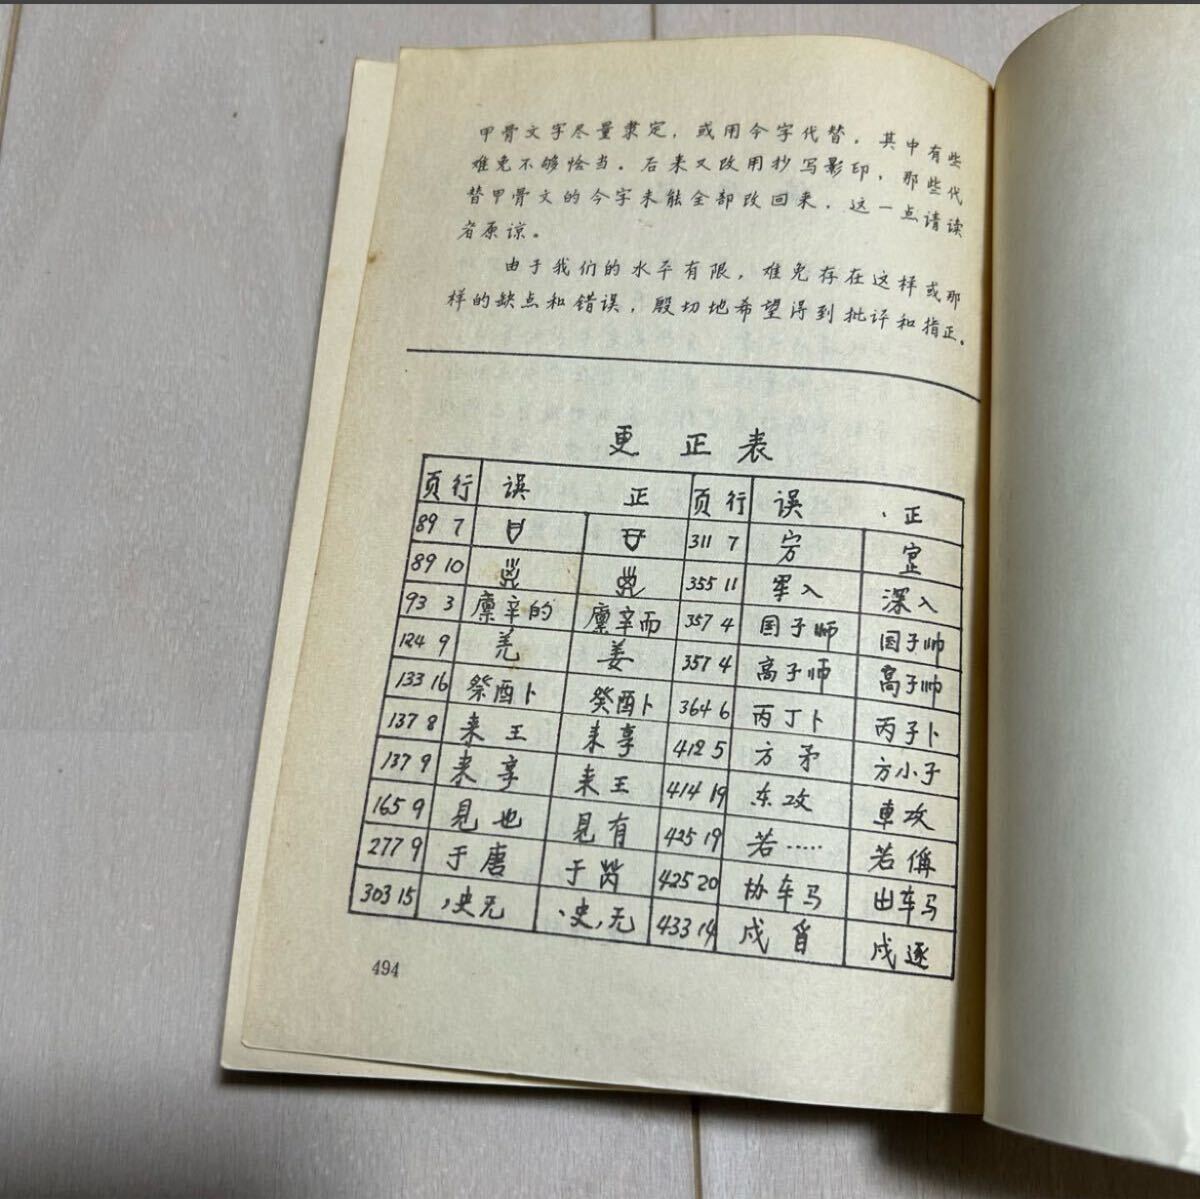 甲骨文字尽量隶定，或用今字代替，其中有些
难免不够恰当。后来又改用抄写影印，那些代
替甲骨文的今字未能全部改回来，这一点请读
者原谅。
由于我们的水平有限，难免存在这样或那
样的缺点和错误，殷切地希望得到批评和指正。
更正表
页 行 误 正 页 行 误 正
89 7 311 7
89 10 355 11 军入 深入
93 3 廪辛的 廪辛而 357 4 国子师 国子帅
124 9 羌 姜 357 4 高子师 高子帅
133 16 祭酉卜 癸酉卜 364 6 丙丁卜 丙子卜
137 8 来王 来享 412 5 方矛 方小子
137 9 来享 来王 414 19 东攻 車攻
165 9 見也 見有 425 19 若…… 若偁
277 9 于唐 于 425 20 协车马 出车马
303 15 ，史无 、史，无 433 14 戍 戍逐
494